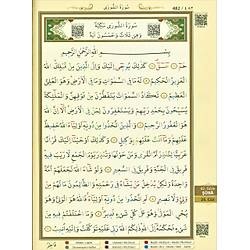 482 / ٤٨٢
سُورَةُ الشُّورٰى
سُورَةُ الشُّورٰى مَكِّيَّةٌ
وَهِيَ ثَلَاثٌ وَخَمْسُونَ اٰيَةً
بِسْمِ اللّٰهِ الرَّحْمٰنِ الرَّحِيمِ
حٰمٓ عٓسٓقٓ كَذٰلِكَ يُوحِي اِلَيْكَ وَاِلَى الَّذِينَ مِنْ قَبْلِكَ اللّٰهُ
الْعَزِيزُ الْحَكِيمُ لَهُ مَا فِي السَّمٰوَاتِ وَمَا فِي الْاَرْضِ وَهُوَ الْعَلِيُّ
الْعَظِيمُ تَكَادُ السَّمٰوَاتُ يَتَفَطَّرْنَ مِنْ فَوْقِهِنَّ وَالْمَلٰٓئِكَةُ
يُسَبِّحُونَ بِحَمْدِ رَبِّهِمْ وَيَسْتَغْفِرُونَ لِمَنْ فِي الْاَرْضِ اَلَٓا اِنَّ اللّٰهَ
هُوَ الْغَفُورُ الرَّحِيمُ وَالَّذِينَ اتَّخَذُوا مِنْ دُونِهِٓ اَوْلِيَٓاءَ اللّٰهُ حَفِيظٌ
عَلَيْهِمْ وَمَٓا اَنْتَ عَلَيْهِمْ بِوَكِيلٍ وَكَذٰلِكَ اَوْحَيْنَٓا اِلَيْكَ قُرْاٰنًا
عَرَبِيًّا لِتُنْذِرَ اُمَّ الْقُرٰى وَمَنْ حَوْلَهَا وَتُنْذِرَ يَوْمَ الْجَمْعِ لَا رَيْبَ
فِيهِ فَرِيقٌ فِي الْجَنَّةِ وَفَرِيقٌ فِي السَّعِيرِ وَلَوْ شَٓاءَ اللّٰهُ لَجَعَلَهُمْ
اُمَّةً وَاحِدَةً وَلٰكِنْ يُدْخِلُ مَنْ يَشَٓاءُ فِي رَحْمَتِهِ وَالظَّالِمُونَ
مَا لَهُمْ مِنْ وَلِيٍّ وَلَا نَصِيرٍ اَمِ اتَّخَذُوا مِنْ دُونِهِٓ اَوْلِيَٓاءَ فَاللّٰهُ
هُوَ الْوَلِيُّ وَهُوَ يُحْيِي الْمَوْتٰى وَهُوَ عَلٰى كُلِّ شَيْءٍ قَدِيرٌ وَمَا اخْتَلَفْتُمْ فِيهِ مِنْ
شَيْءٍ فَحُكْمُهُٓ اِلَى اللّٰهِ ذٰلِكُمُ اللّٰهُ رَبِّي عَلَيْهِ تَوَكَّلْتُ وَاِلَيْهِ اُنِيبُ
ŞÛRA
25. CÜZ